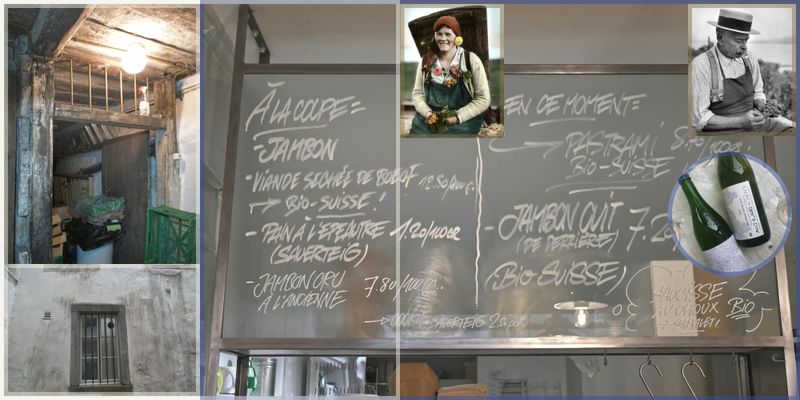 À LA COUPE=
- JAMBON
- VIANDE SECHÉE DE BOEUF 12.50/100gr.
→ BIO-SUISSE!
- PAIN À L'EPEAUTRE 1.20/100GR
(SAUERTEIG)
- JAMBON CRU 7.80/100gr.
À L'ANCIENNE
EN CE MOMENT=
→ PASTRAMI
BIO-SUISSE
- JAMBON CUIT
(DE DERRIÈRE)
(BIO SUISSE)
SAUCISSE
AU CHOUX
BIO